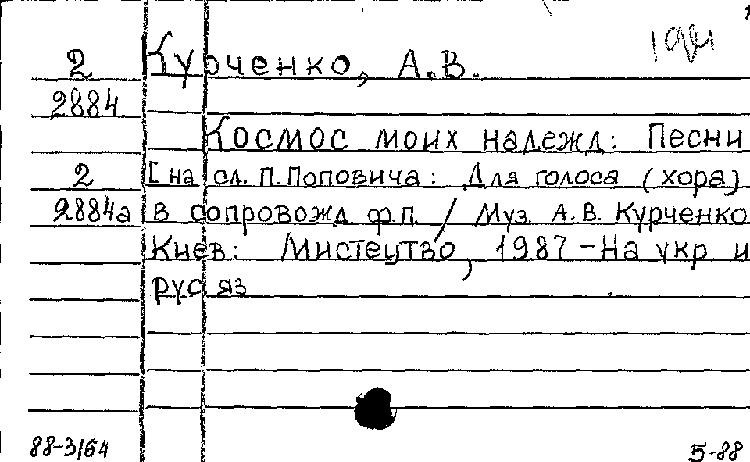 2 Курченко, А.В.
2884
Космос моих надежд: Песни
2 [на сл. П.Поповича: Для голоса (хора)
2884а в сопровожд ф.п. / Муз. А.В. Курченко
Киев: Мистецтво, 1987 - На укр и
рус яз
88-3/64 5-88